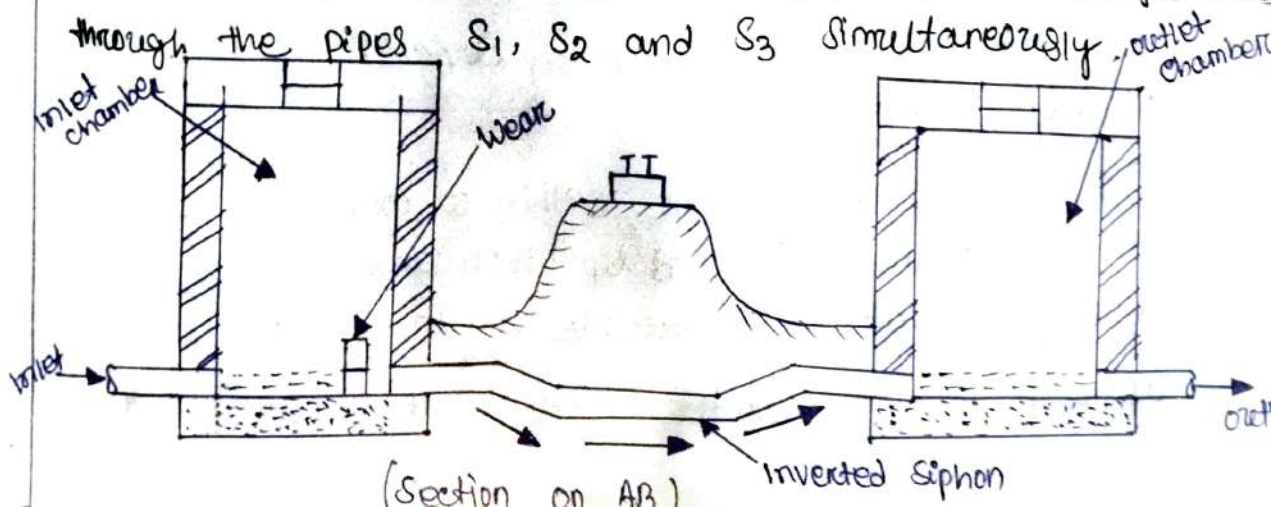 through the pipes S1, S2 and S3 simultaneously.
outlet
chamber
inlet
chamber
Wear
Inlet
outl
Inverted Siphon
(Section on AB)